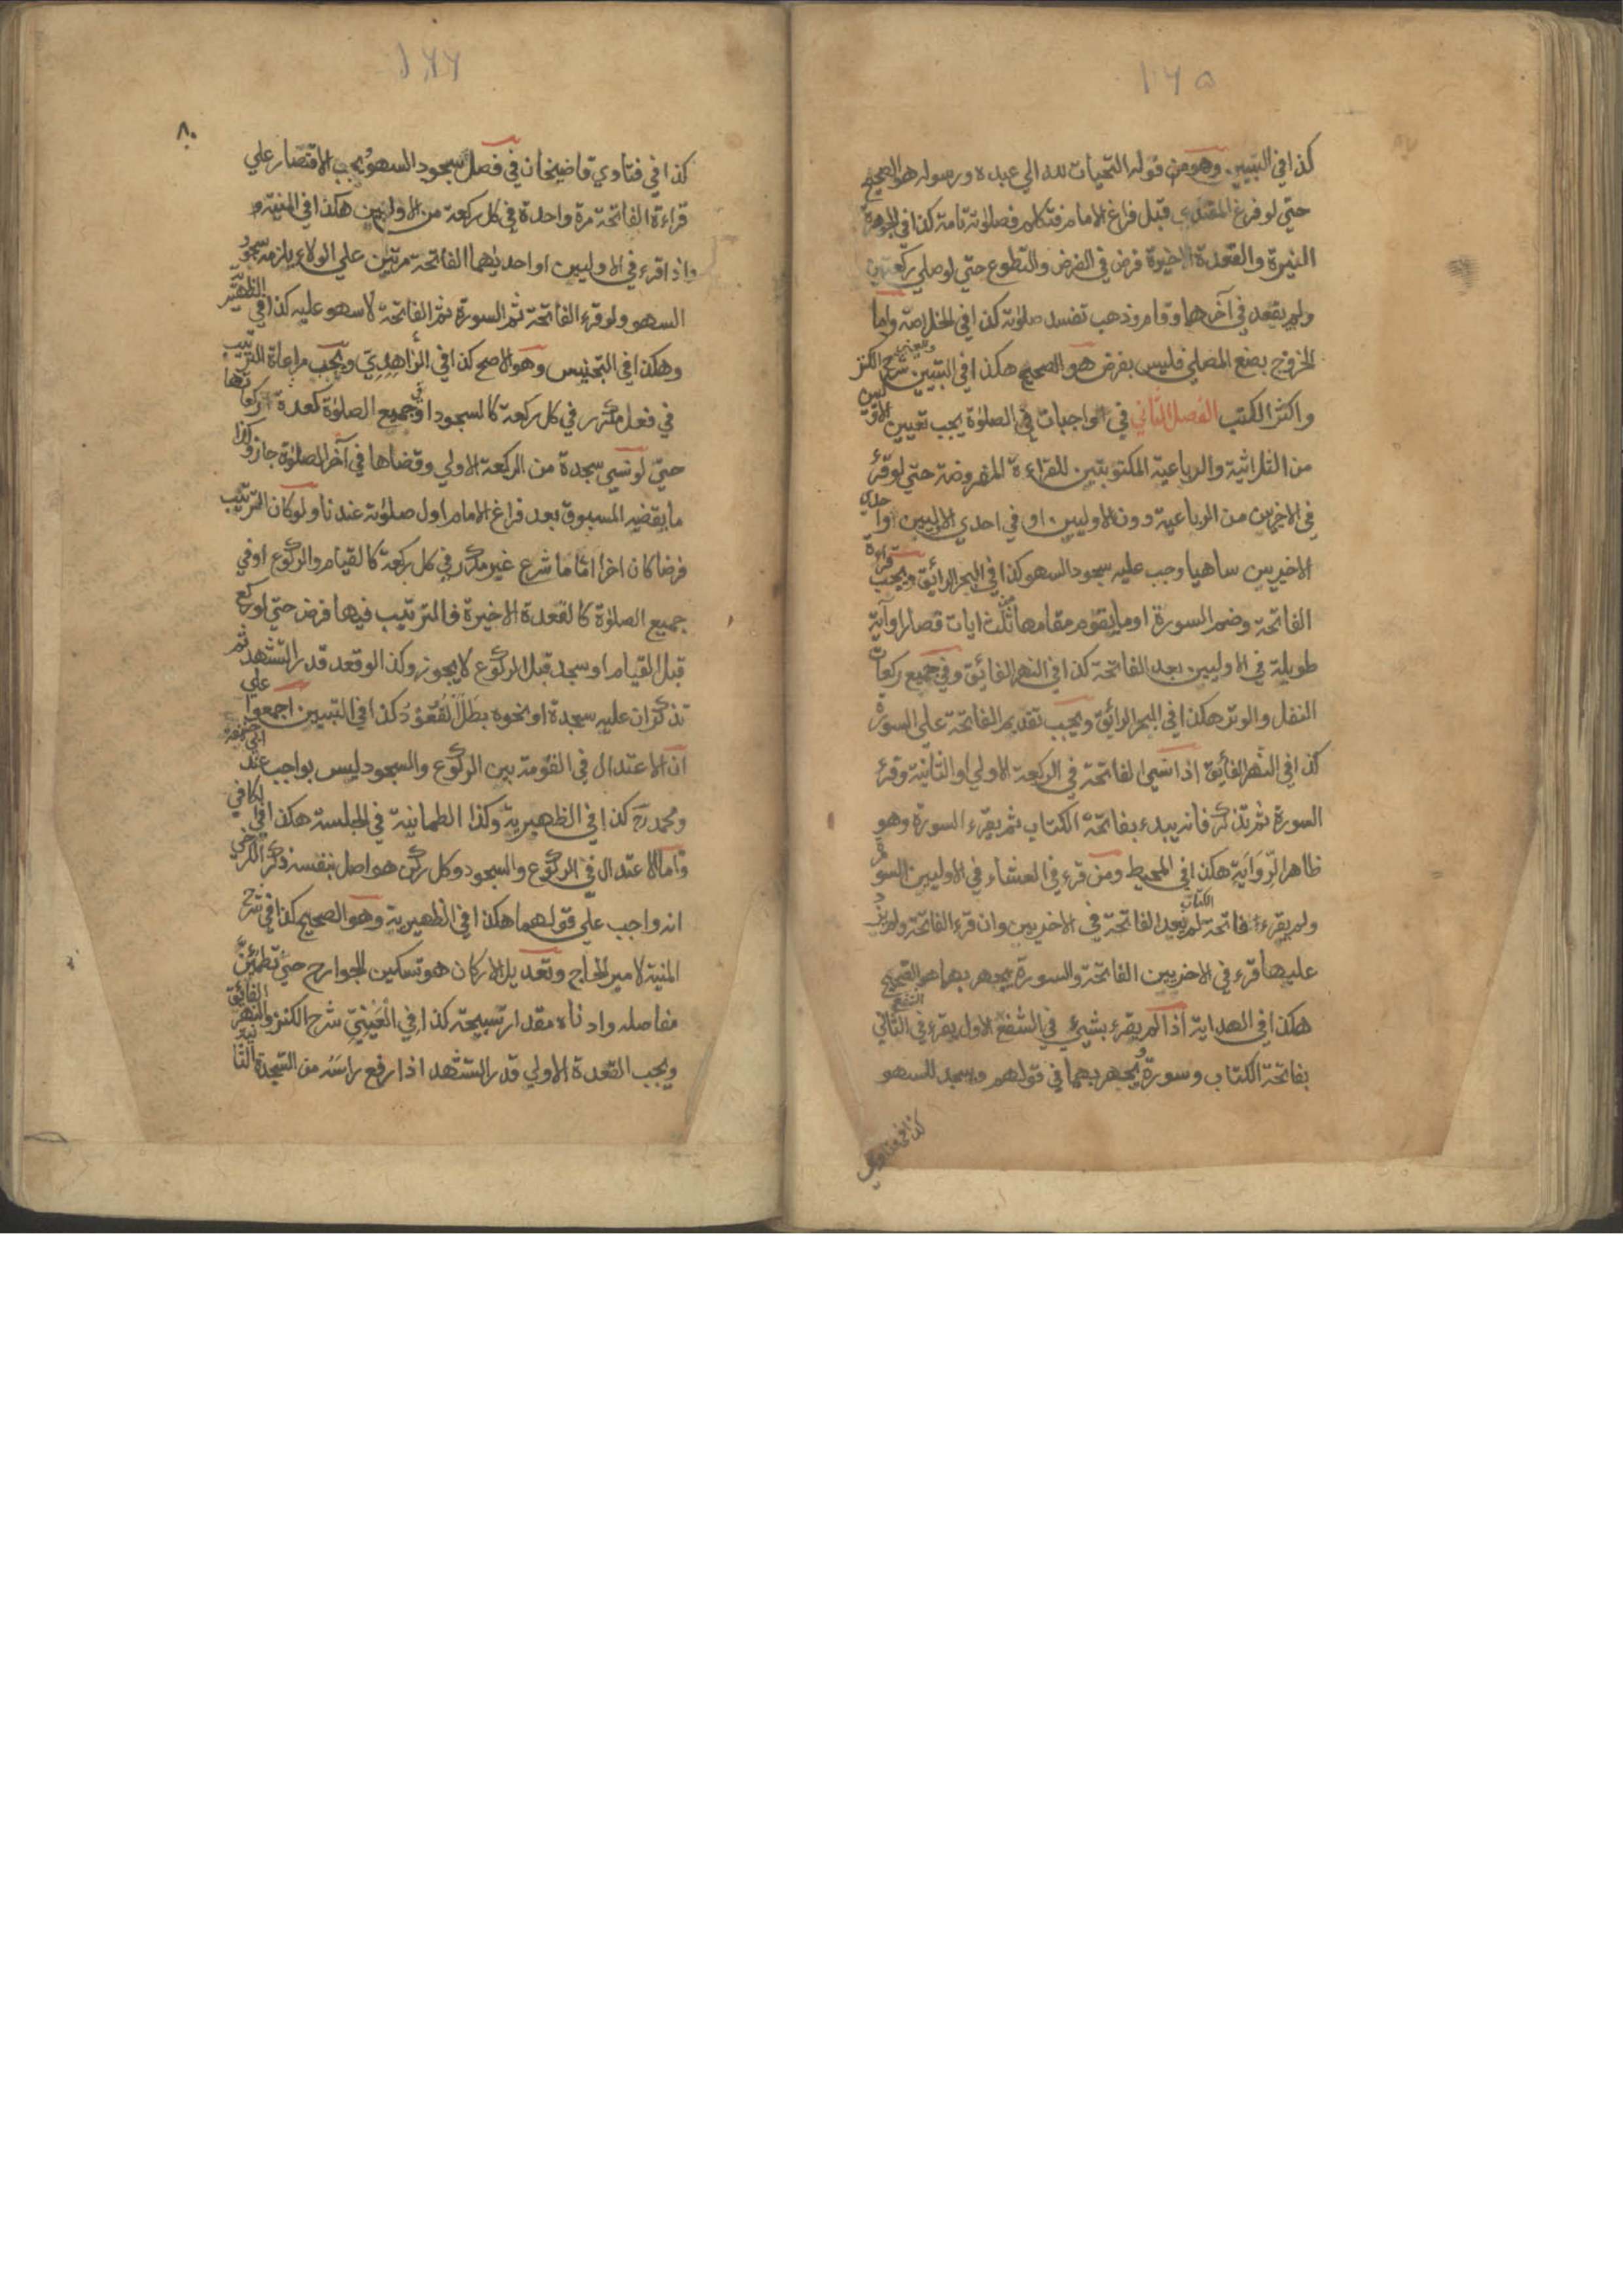 ١٦٥
كذا في التبيين وهو من قوله التحيات لله الي عبده ورسوله هو الصحيح
حتي لو فرغ المقتدي قبل فراغ الامام فتكلم فصلوته تامة كذا في الجوهرة
النيرة والقعدة الاخيرة فرض في الفرض والتطوع حتي لو صلي ركعتين
ولم يقعد في آخرهما وقام وذهب تفسد صلوته كذا في الخلاصة واما
الخروج بصنع المصلي فليس بفرض هو الصحيح هكذا في التبيين وعيني شرح الكنز
واكثر الكتب الفصل الثاني في واجبات في الصلوة يجب تعيين الاوليين
من الثلاثية والرباعية المكتوبتين للقراءة المفروضة حتي لو قرئ
في الاخريين من الرباعية دون الاوليين او في احدي الاليين واحدي
الاخيريين ساهيا وجب عليه سجود السهو كذا في البحر الرائق ويجب قراءة
الفاتحة وضم السورة او ما يقوم مقامها من ثلث ايات قصار او آية
طويلة في الاوليين بعد الفاتحة كذا في النهر الفائق وفي جميع ركعات
النفل والوتر هكذا في البحر الرائق ويجب تقديم الفاتحة علي السورة
كذا في النهر الفائق اذا نسي الفاتحة في الركعة الاولي او الثانية وقرء
السورة ثم تذكر فانه يبدء بفاتحة الكتاب ثم يقرء السورة وهو
ظاهر الرواية هكذا في المحيط ومن قرء في العشاء في الاوليين السورة
ولم يقرء فاتحة الكتاب لم يعد الفاتحة في الاخريين وان قرء الفاتحة ولم يزد
عليها قرء في الاخريين الفاتحة والسورة يجهر بهما هو الصحيح
هكذا في الهداية اذا لم يقرء بشيئ في الشفع الاول يقرء في الشفع الثاني
بفاتحة الكتاب وسورة ويجهر بهما في قولهم ويسجد للسهو
كذا في فتاوي
١٦٦
٨٠
كذا في فتاوي قاضيخان في فصل سجود السهو ويجب الاقتصار علي
قراءة الفاتحة مرة واحدة في كل ركعة من الاوليين هكذا في المنية و
واذا قرء في الاوليين او احديهما الفاتحة مرتين علي الولاء يلزمه سجود
السهو ولو قرء الفاتحة ثم السورة ثم الفاتحة لا سهو عليه كذا في الظهيرية
وهكذا في التجنيس وهو الاصح كذا في الزاهدي ويجب مراعاة الترتيب
في فعل مكرر في كل ركعة كالسجود او في جميع الصلوة كعدد ركعاتها
حتي لو نسي سجدة من الركعة الاولي وقضاها في آخر الصلوة جاز وكذا
ما يقضيه المسبوق بعد فراغ الامام اول صلوته عندنا ولو كان الترتيب
فرضا كان اخرا اما ما شرع غير مكرر في كل ركعة كالقيام والركوع او في
جميع الصلوة كالقعدة الاخيرة فالترتيب فيها فرض حتي لو ركع
قبل القيام او سجد قبل الركوع لا يجوز وكذا لو قعد قدر التشهد ثم
تذكر ان عليه سجدة او نحوه بطل القعود كذا في التبيين اجمعوا علي
ان الاعتدال في القومة بين الركوع والسجود ليس بواجب عند ابي حنيفة
ومحمد رح كذا في الظهيرية وكذا الطمانينة في الجلسة هكذا في الكافي
واما الاعتدال في الركوع والسجود وكل ركن هو اصل بنفسه ذكر الكرخي
انه واجب علي قولهما هكذا في الظهيرية وهو الصحيح كذا في شرح
المنية لامير الحاج وتعديل الاركان هو تسكين الجوارح حتي تطمئن
مفاصله وادناه مقدار تسبيحة كذا في العيني شرح الكنز والنهر الفائق
ويجب القعدة الاولي قدر التشهد اذا رفع راسه من السجدة الثانية